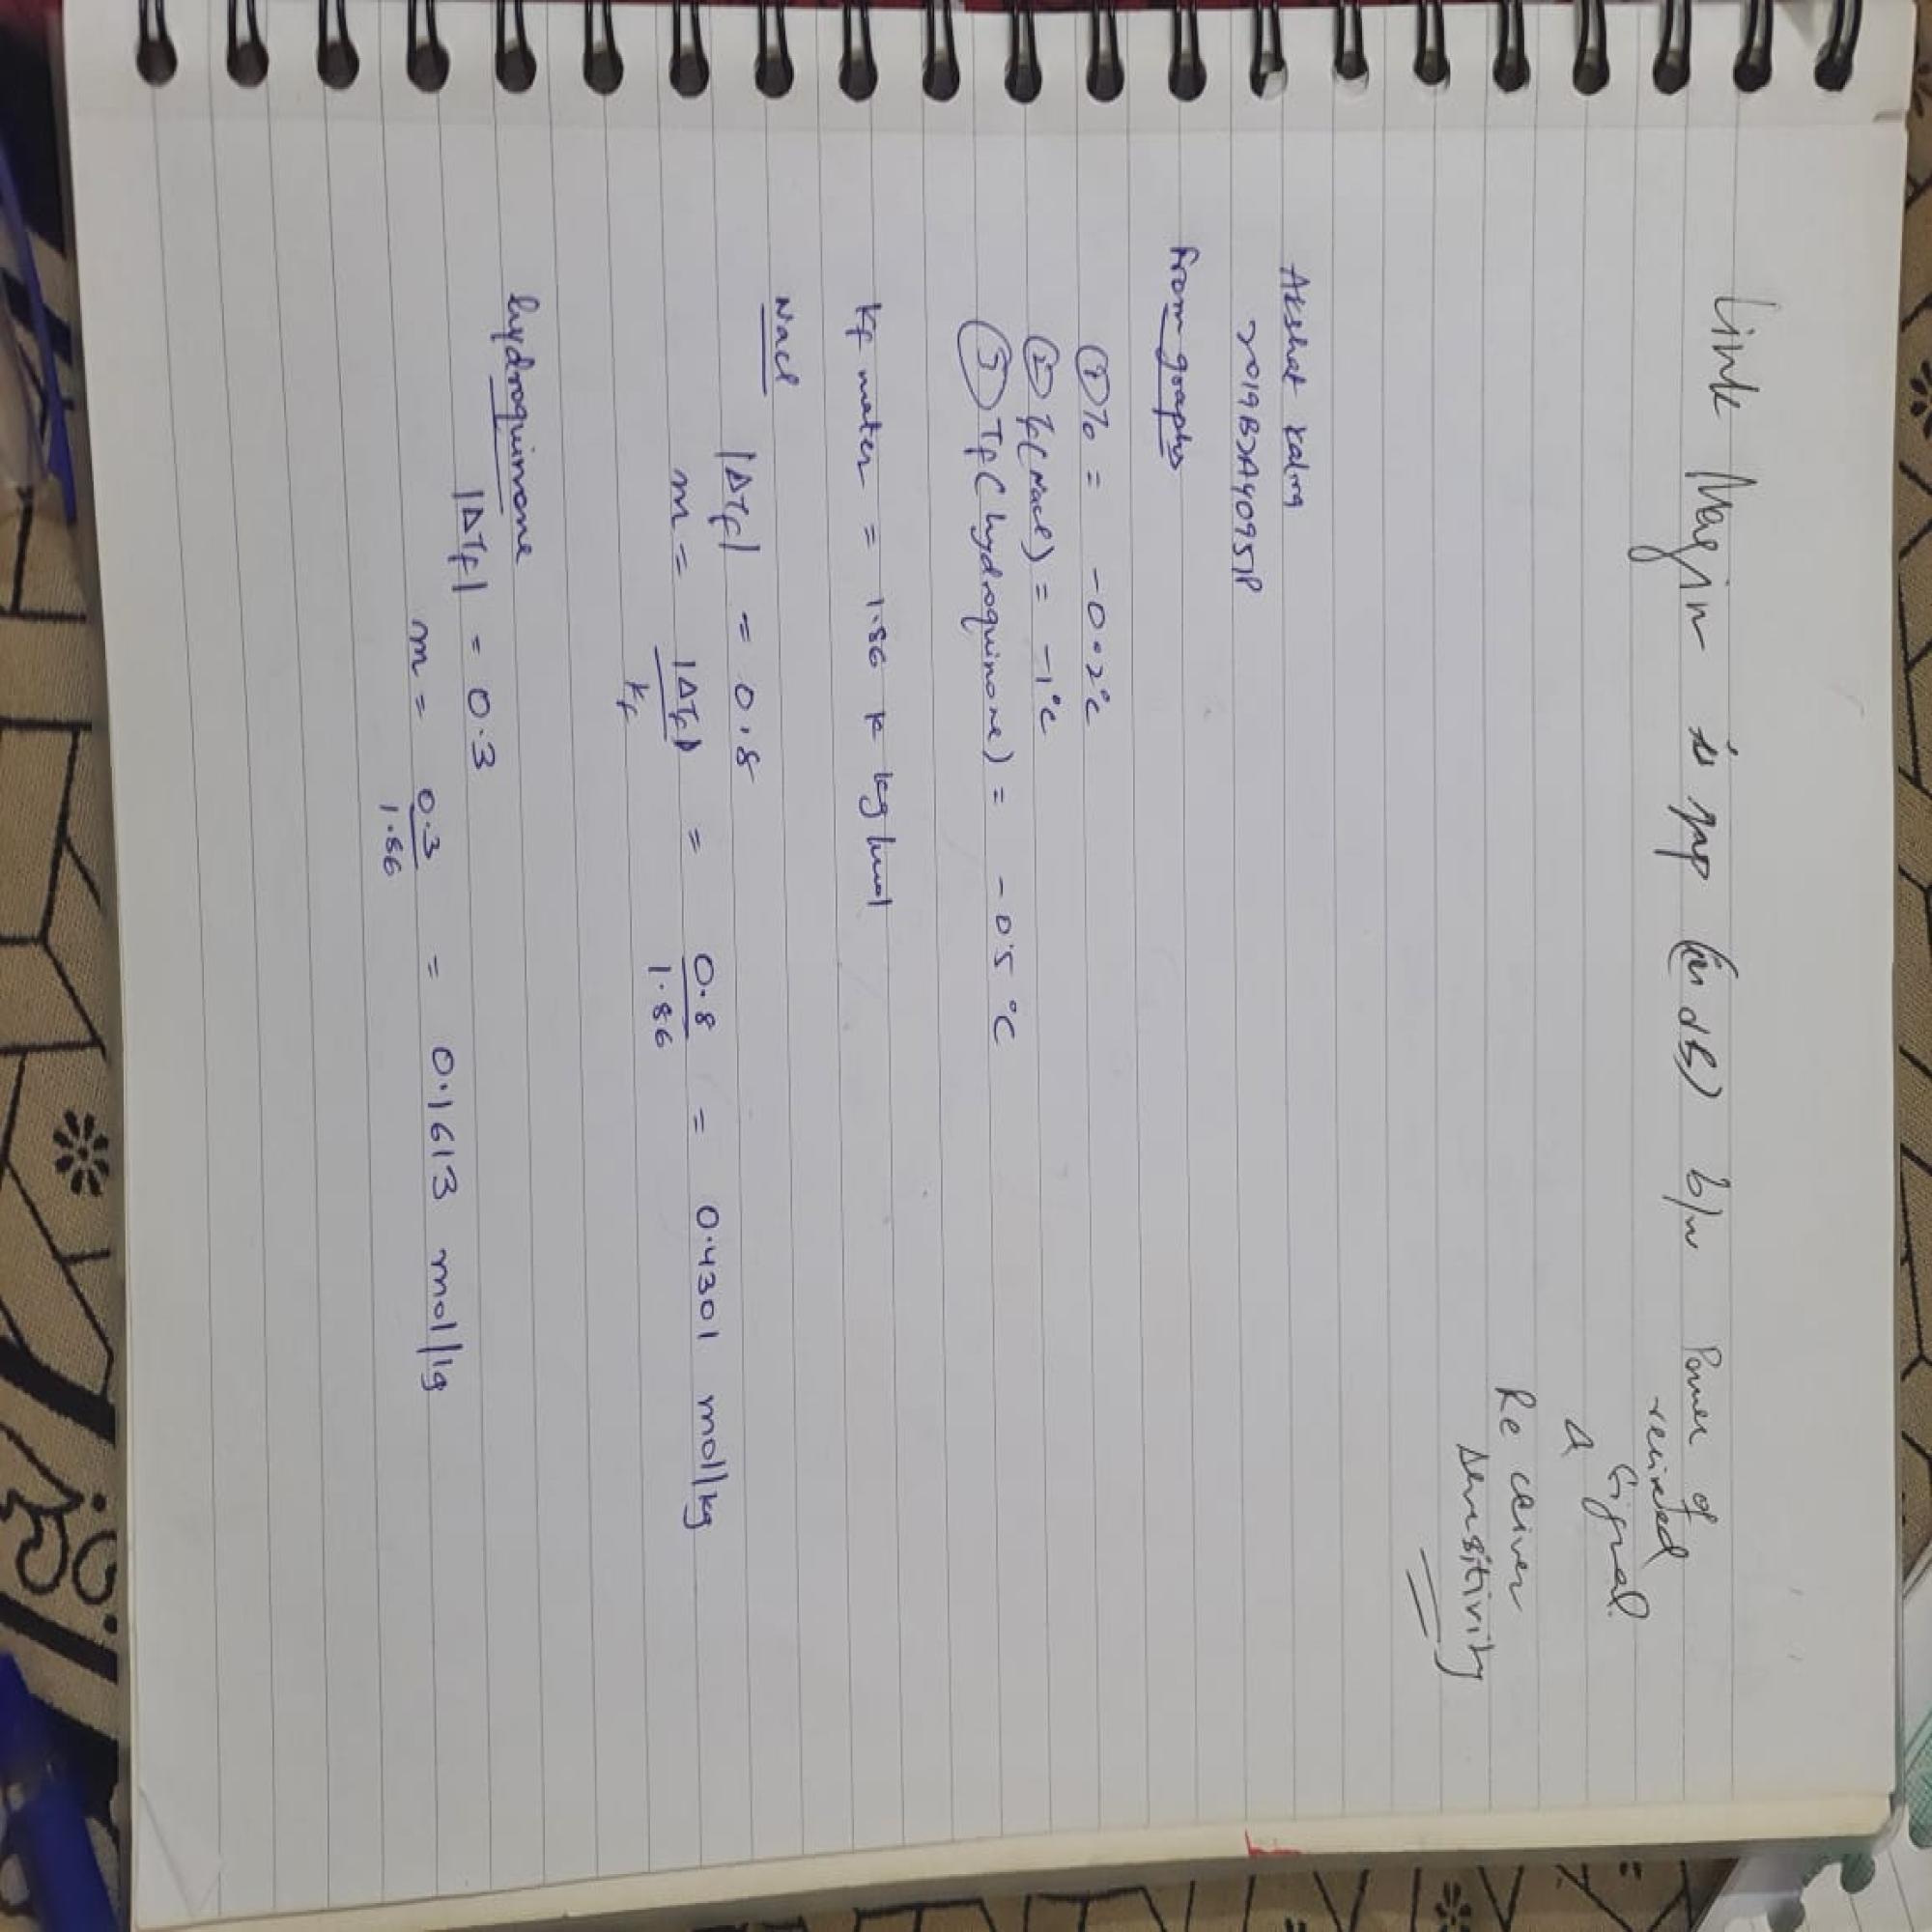 Link Margin is gap (in dB) b/w Power of
received
Signal
&
Receiver
sensitivity
Akshat Kalra
2019B2A40951P
From graphs
① T0 = -0.2°C
② Tf (NaCl) = -1°C
③ Tf (hydroquinone) = -0.5°C
Kf water = 1.86 K kg/mol
NaCl
|ΔTf| = 0.8
m = |ΔTf| / Kf = 0.8 / 1.86 = 0.4301 mol/kg
hydroquinone
|ΔTf| = 0.3
m = 0.3 / 1.86 = 0.1613 mol/kg